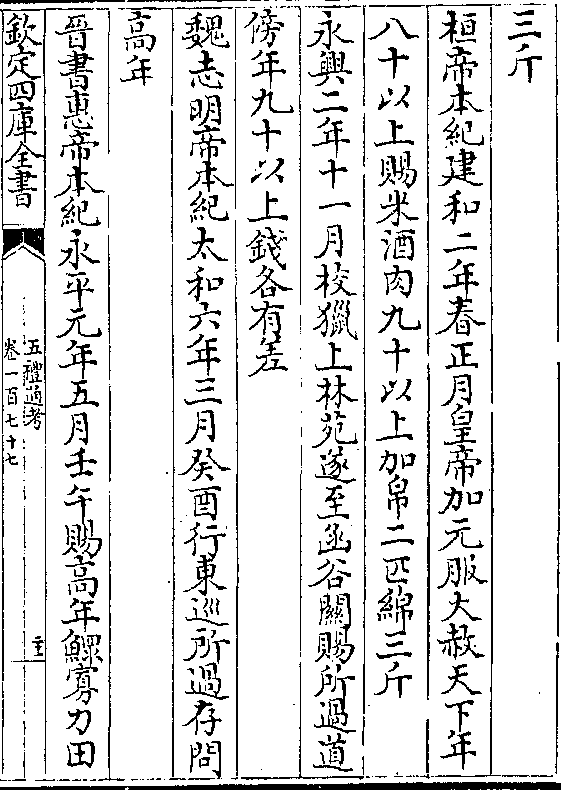 三斤
桓帝本紀建和二年春正月皇帝加元服大赦天下年
八十以上賜米酒肉九十以上加帛二匹綿三斤
永興二年十一月校獵上林苑遂至函谷關賜所過道
傍年九十以上錢各有差
魏志明帝本紀太和六年三月癸酉行東巡所過存問
高年
晉書惠帝本紀永平元年五月壬午賜高年鰥寡力田
欽定四庫全書
五禮通考
卷一百七十七